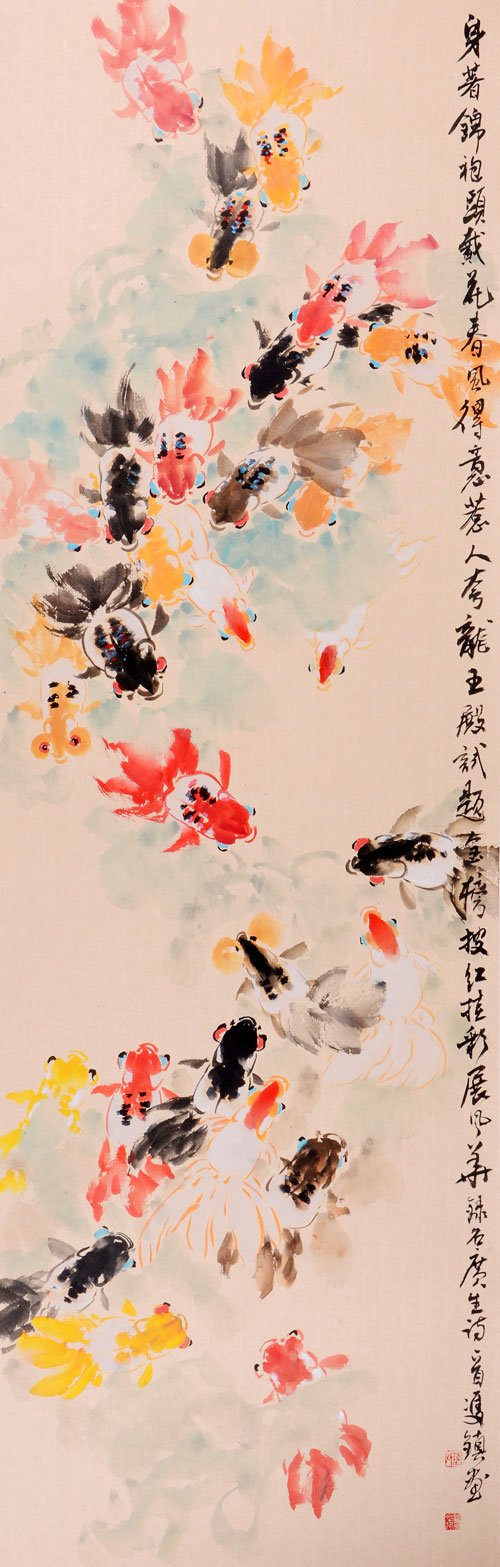 身著錦袍頭戴花春風得意惹人夸龍王殿試題金榜披紅掛彩展風華錄石廣生詩一首馮鎮畫